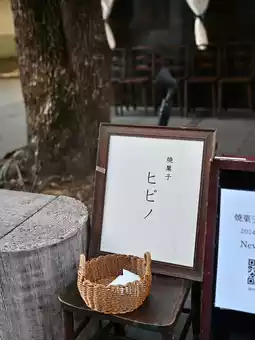 焼菓子
ヒビノ
焼菓
2024
New